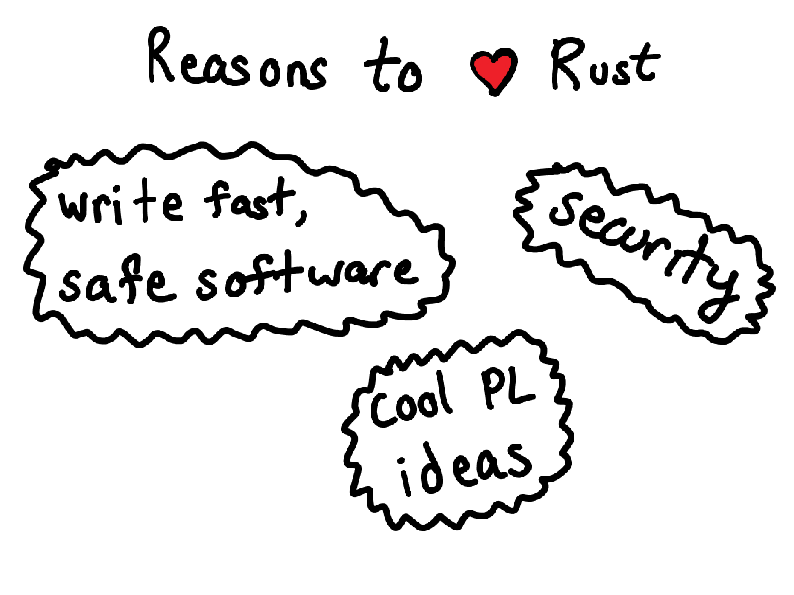 Reasons to ❤ Rust
write fast,
safe software
security
cool PL
ideas